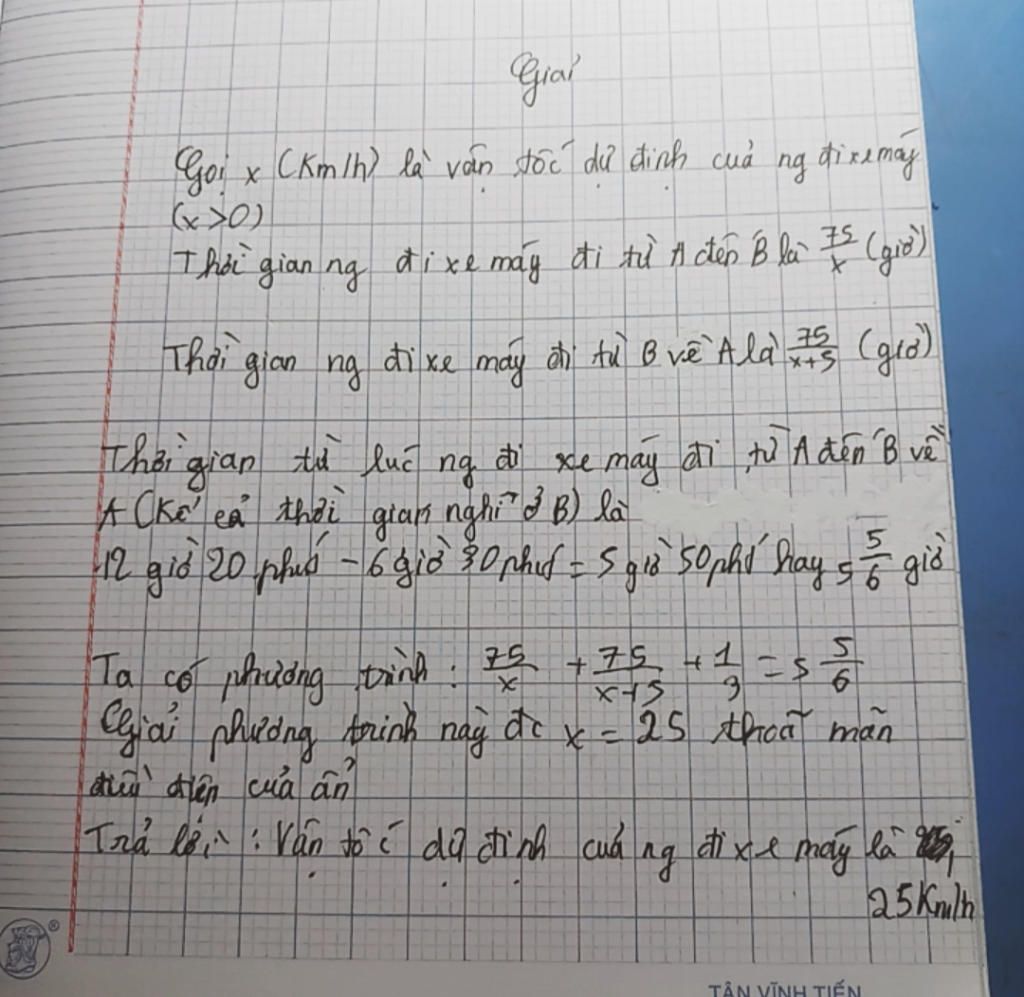 Giải
Gọi x (Km/h) là vận tốc dự định cuả ng đi xe máy
(x > 0)
Thời gian ng đi xe máy đi từ A đến B là 75/x (giờ)
Thời gian ng đi xe máy đi từ B về A là 75/x+5 (giờ)
Thời gian từ lúc ng đi xe máy đi từ A đến B về
A (Kể cả thời gian nghỉ ở B) là
12 giờ 20 phút - 6 giờ 30 phút = 5 giờ 50 phú hay 5 5/6 giờ
Ta có phương trình : 75/x + 75/x+5 + 1/3 = 5 5/6
Giải phương trình này đc x = 25 thoã mãn
điều điện của ẩn
Trả lời : Vận tốc dự định cuả ng đi xe máy là
25 Km/h
®
TÂN VĨNH TIẾN